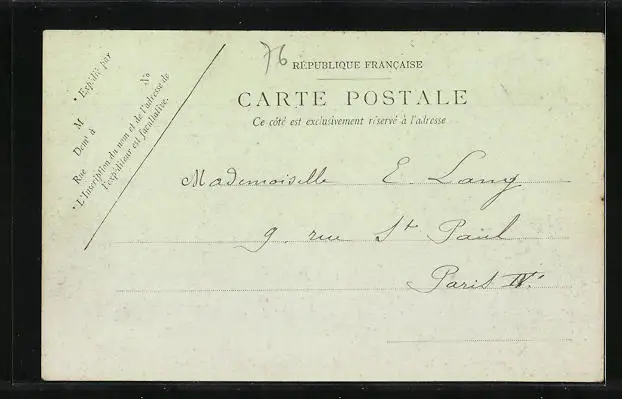 * Expédié par
M
Dem.t à
Rue N°
* L'Inscription du nom et de l'adresse de
l'expéditeur est facultative.
76
RÉPUBLIQUE FRANÇAISE
CARTE POSTALE
Ce côté est exclusivement réservé à l'adresse
Mademoiselle E. Lang
9. rue St Paul
Paris IVe